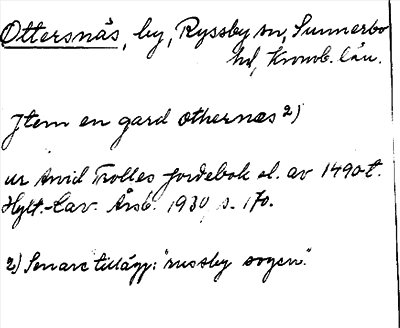 Ottersnäs, by, Ryssby sn, Sunnerbo
hd, Kronob. län.
Jtem en gard othernæs 2)
ur Arvid Trolles jordebok sl. av 1490-t.
Hylt.-Cav. Årsb. 1930, s. 170.
2) Senare tillägg: "russby sogen".